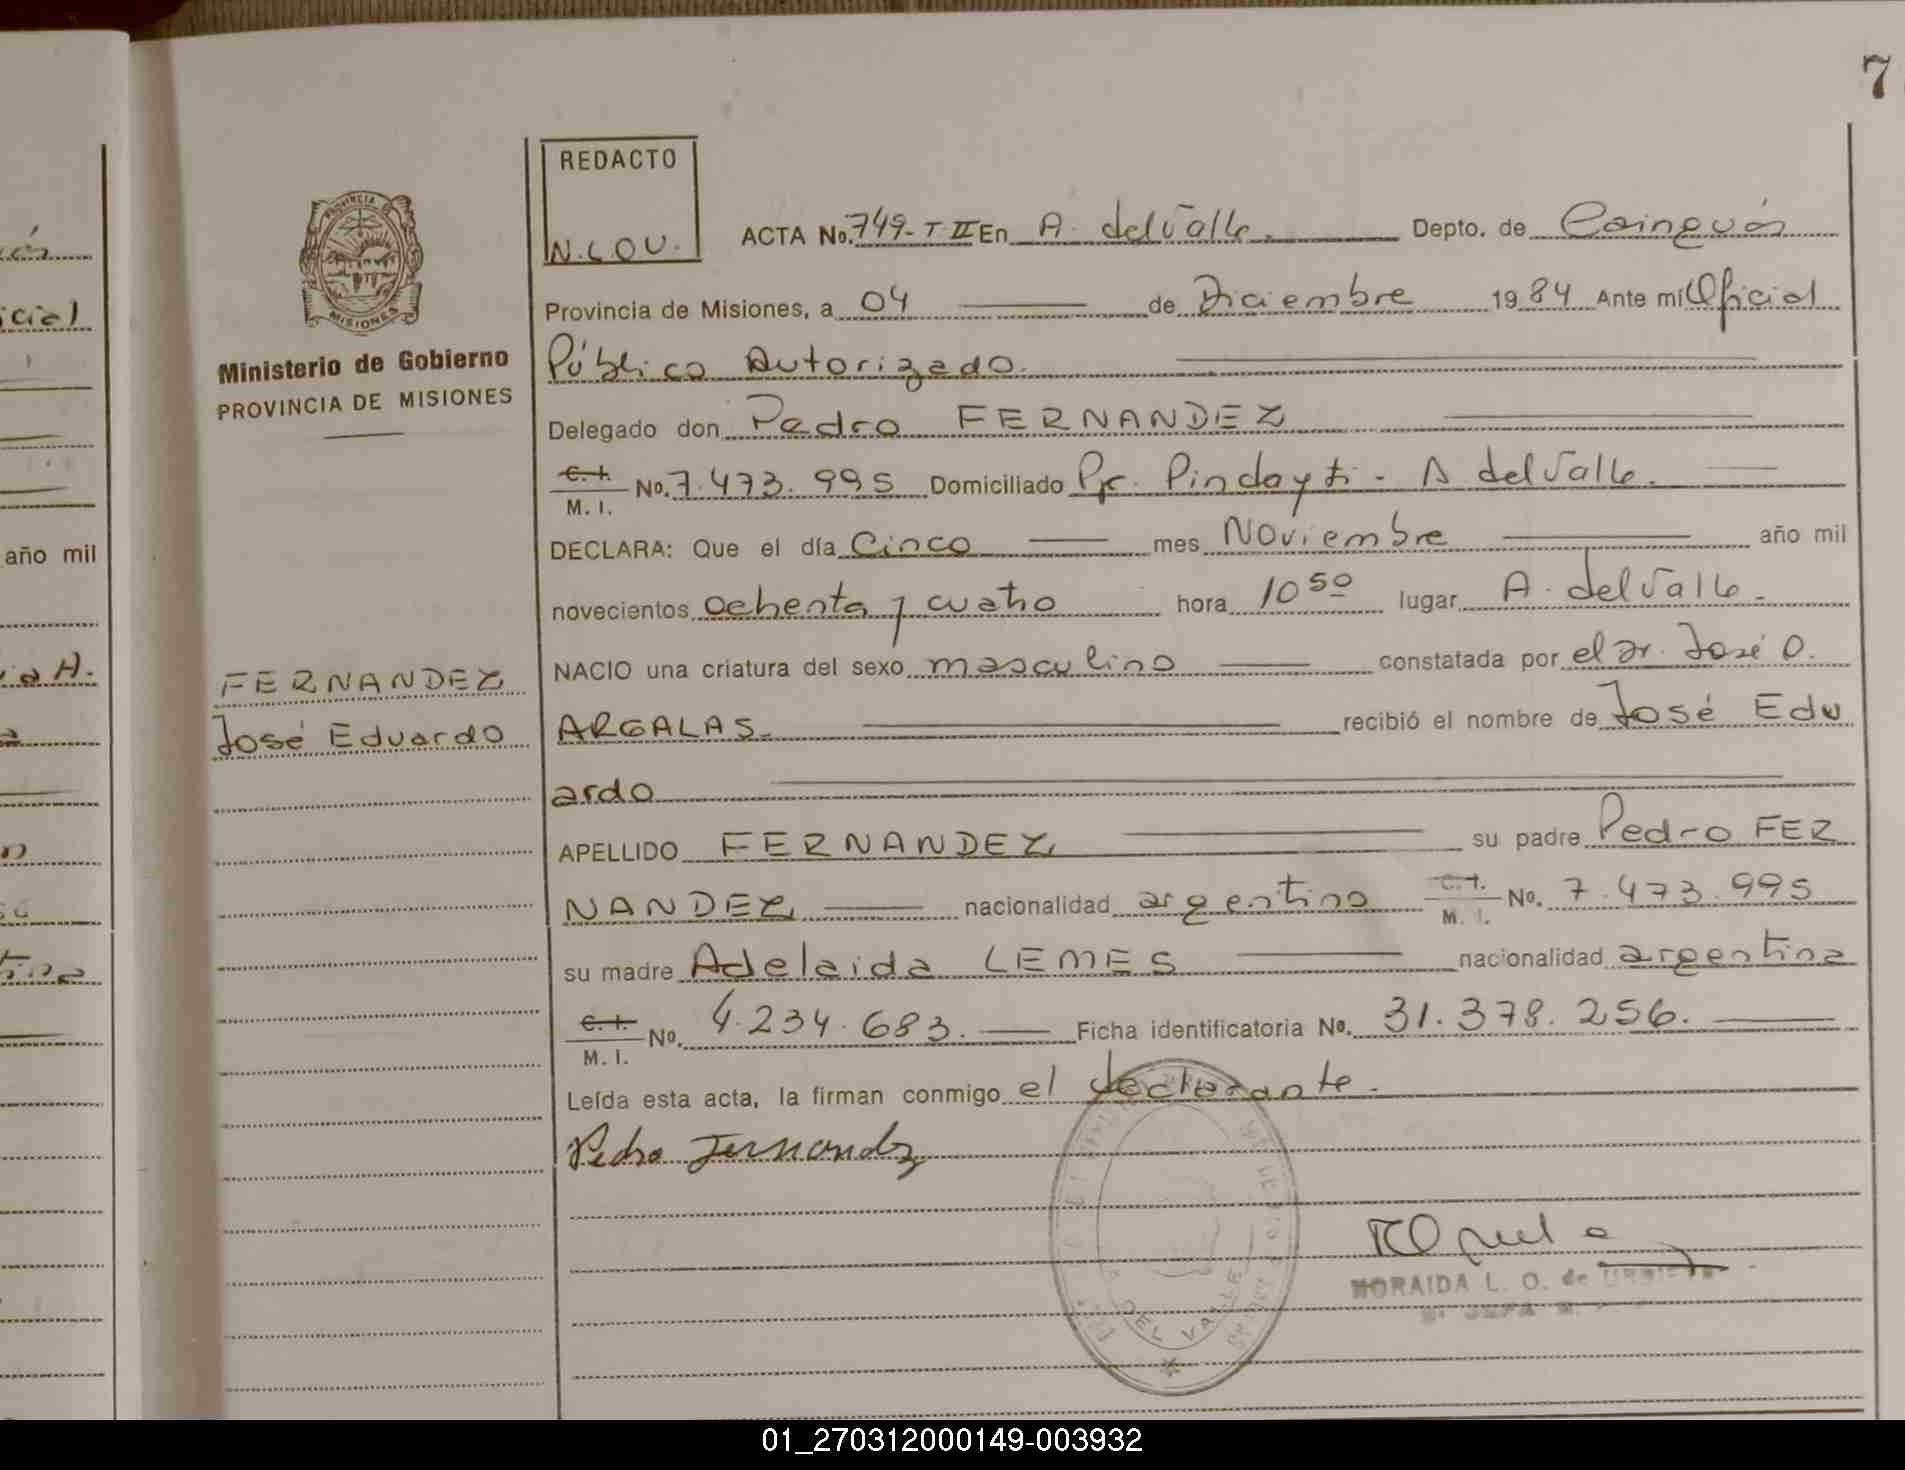 7
REDACTO
N.L.O.U.
PROVINCIA DE
MISIONES
Ministerio de Gobierno
PROVINCIA DE MISIONES
ACTA No. 749-T-II En A. del Valle. Depto. de Cainguás
Provincia de Misiones, a 04 de Diciembre 1984 Ante mí Oficial
Público Autorizado.
Delegado don Pedro FERNANDEZ
C. I.
M. I. No. 7.473.995 Domiciliado Pje. Pindayti - A del Valle.
DECLARA: Que el día Cinco mes Noviembre año mil
novecientos ochenta y cuatro hora 10 50 lugar A. del Valle.
NACIO una criatura del sexo masculino constatada por el Dr. José O.
ARGALAS. recibió el nombre de José Edu
ardo
FERNANDEZ
José Eduardo
APELLIDO FERNANDEZ su padre Pedro FER
NANDEZ nacionalidad argentino C. I. M. I. No. 7.473.995
su madre Adelaida LEMES nacionalidad argentina
C. I.
M. I. No. 4.234.683. Ficha identificatoria No. 31.378.256.
Leída esta acta, la firman conmigo el declarante.
Pedro Fernandez
DEL VALLE
NORAIDA L. O. de
año mil
01_270312000149-003932